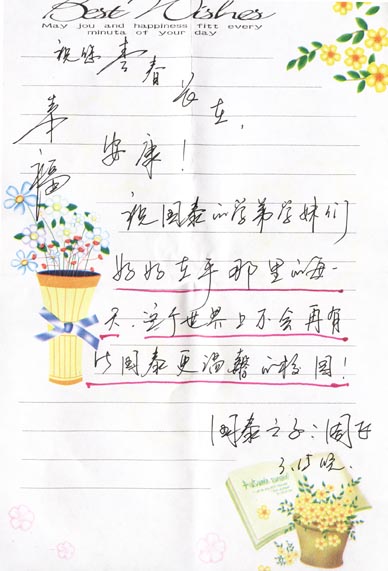 Best Wishes
May jou and happiness fitt every
minuta of your day
祝您青春
长在,
幸福
安康!
祝国泰的学弟学妹们
好好在乎那里的每一
天.这个世界上不会再有
比国泰更温馨的校园!
国泰之子:周
3.15晚.